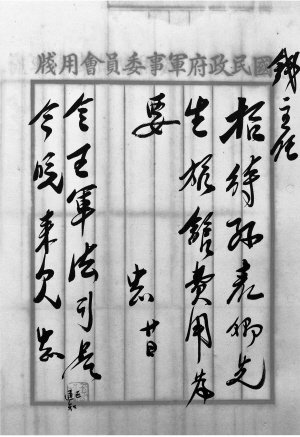 國民政府軍事委員會用牋
錢主任
招待孫表卿先
生旅館費用為
要
志 廿日
令王軍法司長
今晚來見 志